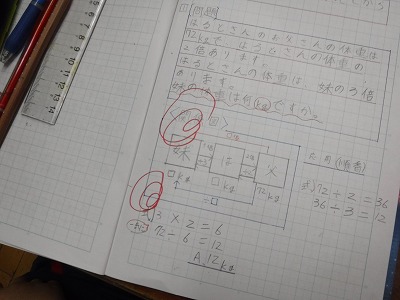 [問題]
はるとさんのお父さんの体重は
72kgで、はるとさんの体重の
2倍あります。
はるとさんの体重は、妹の3倍
あります。
妹の体重は何kgですか。
妹
は
父
□kg
□kg
72kg
式 72 ÷ 2 = 36
36 ÷ 3 = 12
3 × 2 = 6
72 ÷ 6 = 12
A. 12kg